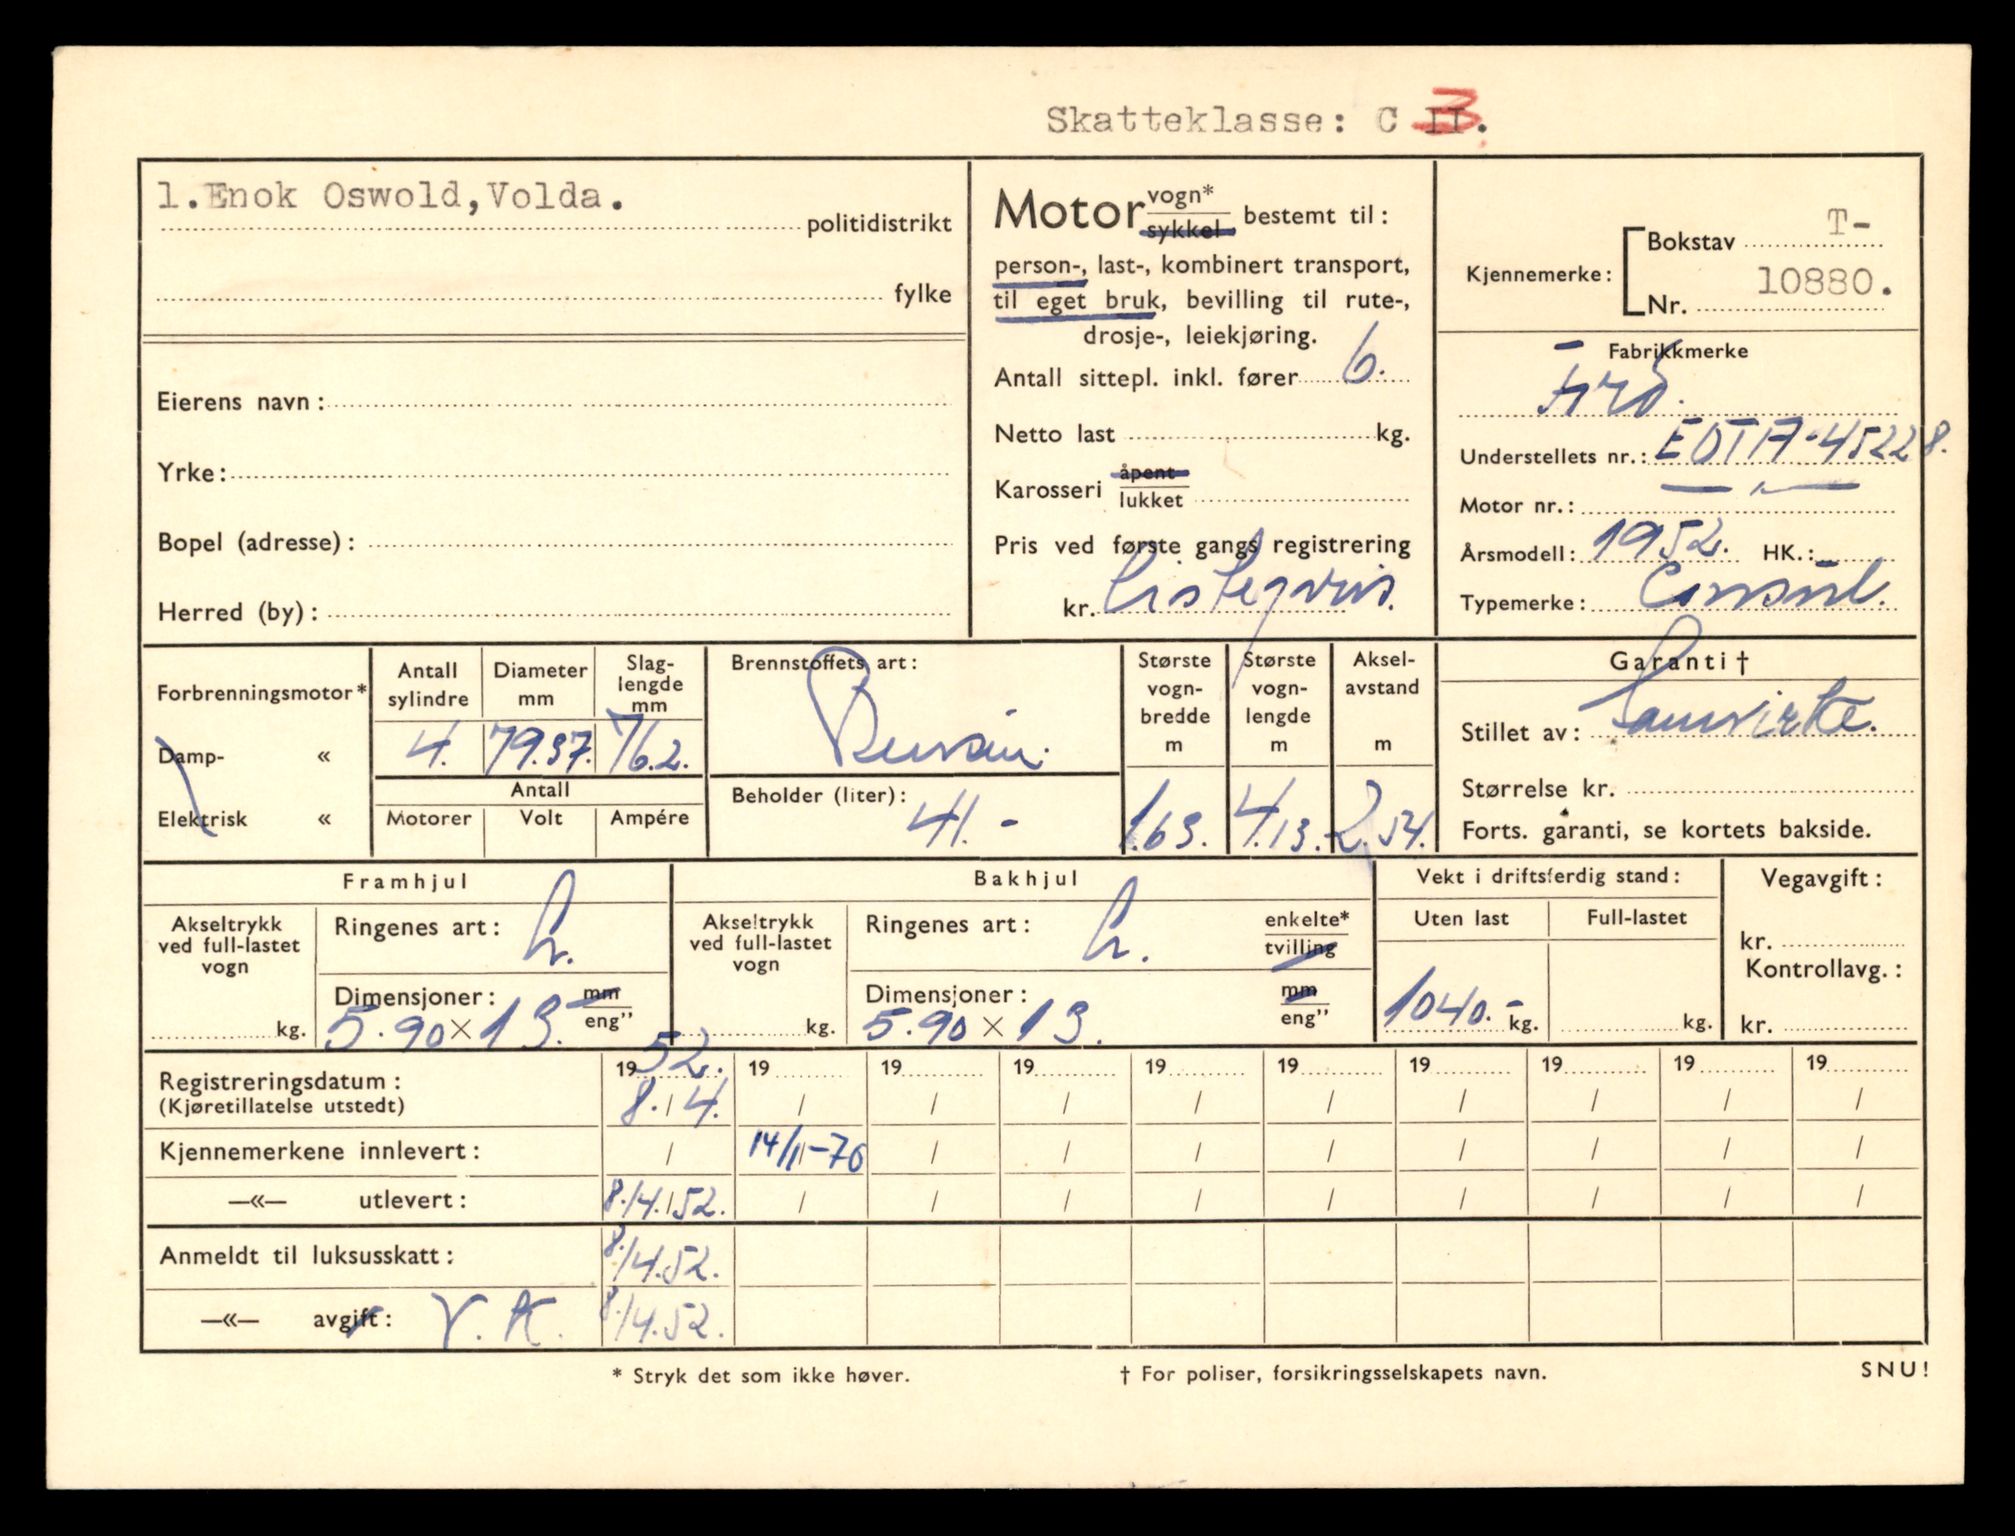 Skatteklasse: C II. 3
1.Enok Oswold,Volda.
politidistrikt
fylke
Eierens navn:
Yrke:
Bopel (adresse):
Herred (by):
Motor vogn* sykkel bestemt til:
person-, last-, kombinert transport,
til eget bruk, bevilling til rute-,
drosje-, leiekjøring.
Antall sittepl. inkl. fører 6.
Netto last kg.
Karosseri åpent lukket
Pris ved første gangs registrering
kr. Listepris.
Kjennemerke: Bokstav T-
Nr. 10880.
Fabrikkmerke
Ford.
Understellets nr.: EOTA-45228.
Motor nr.: — " —
Årsmodell: 1952. HK.:
Typemerke: Consul.
Forbrenningsmotor*
Damp- «
Elektrisk «
Antall sylindre
4.
Diameter mm
79.37.
Slag-lengde mm
76.2.
Antall
Motorer Volt Ampére
Brennstoffets art:
Bensin.
Beholder (liter):
41.-
Største vogn-bredde m
1.63.
Største vogn-lengde m
4.13.
Aksel-avstand m
2.54.
Garanti†
Stillet av: Samvirke.
Størrelse kr.
Forts. garanti, se kortets bakside.
Framhjul
Akseltrykk ved full-lastet vogn
kg.
Ringenes art: L.
Dimensjoner: mm eng”
5.90 × 13.
Bakhjul
Akseltrykk ved full-lastet vogn
kg.
Ringenes art: L. enkelte* tvilling
Dimensjoner: mm eng”
5.90 × 13.
Vekt i driftsferdig stand:
Uten last Full-lastet
1040.- kg. kg.
Vegavgift:
kr.
Kontrollavg.:
kr.
Registreringsdatum: 1952. 19 19 19 19 19 19 19 19 19
(Kjøretillatelse utstedt) 8./4. / / / / / / / / /
Kjennemerkene innlevert: / 14/11-70 / / / / / / / /
—«— utlevert: 8./4.52. / / / / / / / / /
Anmeldt til luksusskatt: 8./4.52.
—«— avgift: V.K. 8./4.52.
* Stryk det som ikke høver.
† For poliser, forsikringsselskapets navn.
SNU!